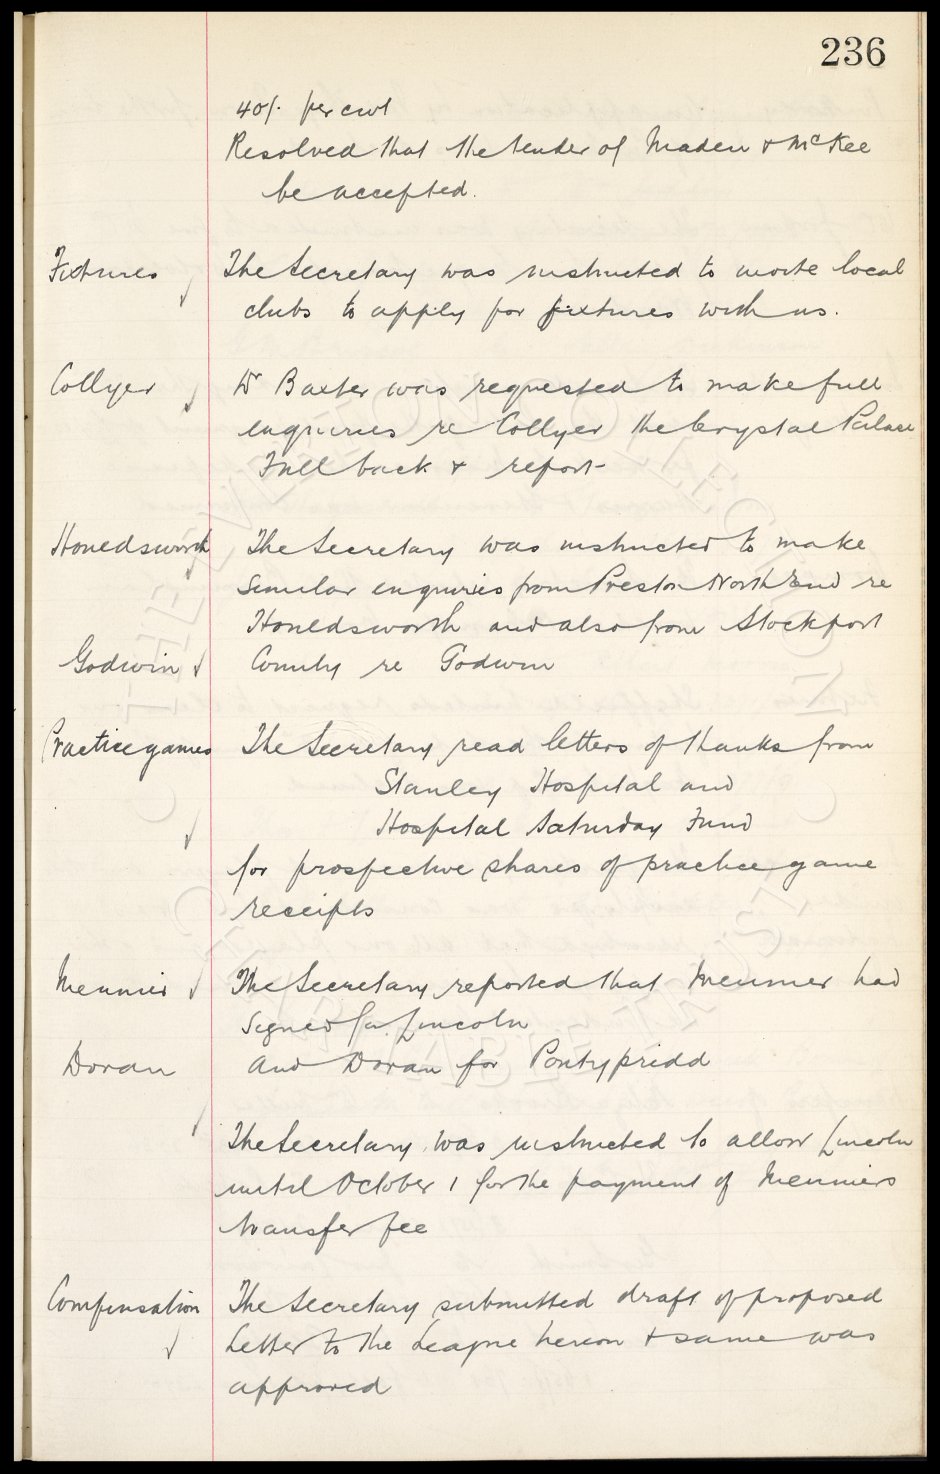 236
40/- per cwt
Resolved that the tender of Maden & McKee
be accepted.
Fixtures The Secretary was instructed to invite local
clubs to apply for fixtures with us.
Collyer Dr Baxter was requested to make full
enquiries re Collyer the Crystal Palace
Full back & report
Houedsworth The Secretary was instructed to make
similar enquiries from Preston North End re
Houldsworth and also from Stockport
Godwin County re Godwin
Practice games The Secretary read letters of thanks from
Stanley Hospital and
Hospital Saturday Fund
for prospective shares of practice game
receipts
Meunier The Secretary reported that Meunier had
signed for Lincoln
Doran and Doran for Pontypridd
The Secretary was instructed to allow Lincoln
until October 1 for the payment of Meuniers
transfer fee
Compensation The Secretary submitted draft of proposed
Letter to the League hereon & same was
approved